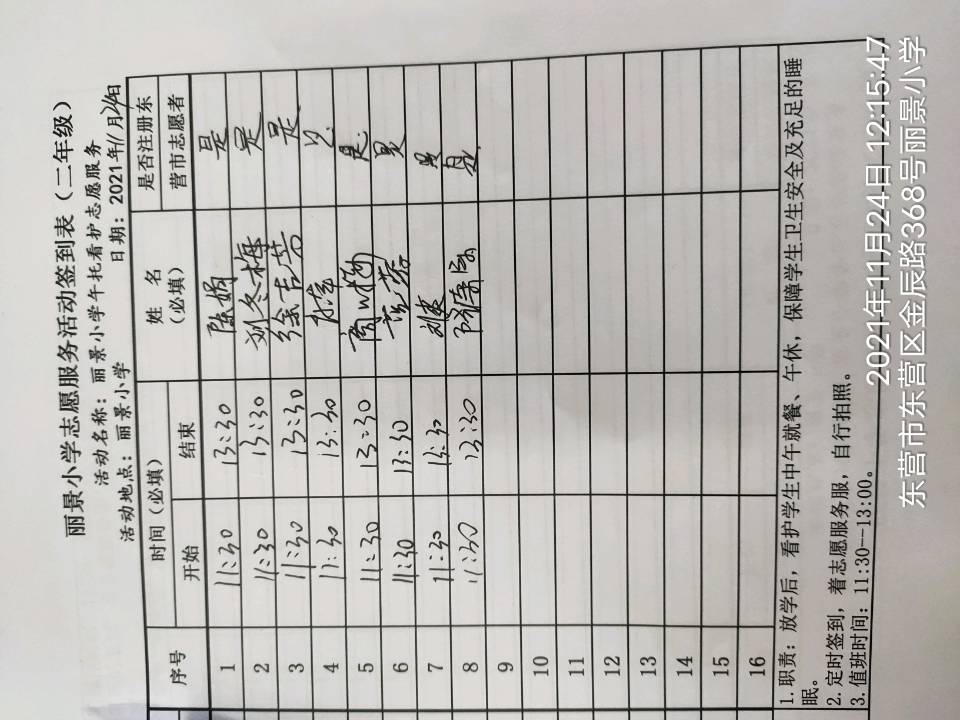 丽景小学志愿服务活动签到表（二年级）
活动名称：丽景小学午托看护志愿服务
活动地点：丽景小学 日期：2021年11月24日
序号 时间（必填） 姓名（必填） 是否注册东营市志愿者
开始 结束
1 11:30 13:30 陈娟 是
2 11:30 13:30 刘冬梅 是
3 11:30 13:30 徐吉芳 是
4 11:30 13:30 是
5 11:30 13:30 是
6 11:30 13:30 范蓉 是
7 11:30 13:30 是
8 11:30 13:30 是
9
10
11
12
13
14
15
16
1. 职责：放学后，看护学生中午就餐、午休，保障学生卫生安全及充足的睡
眠。
2. 定时签到，着志愿服务服，自行拍照。
3. 值班时间：11:30--13:00。
2021年11月24日 12:15:47
东营市东营区金辰路368号丽景小学